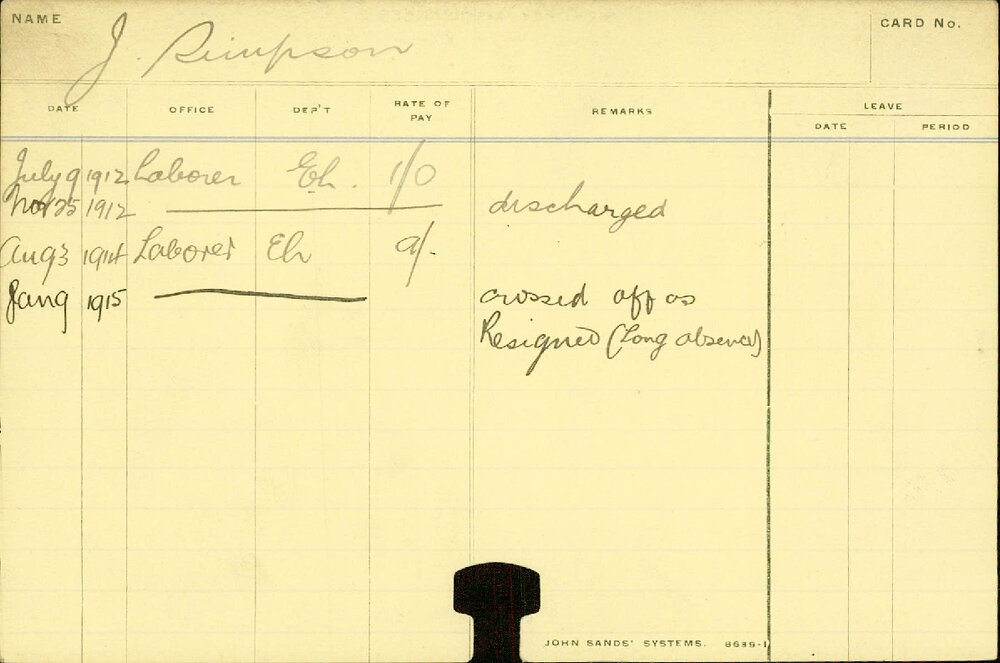 NAME J. Simpson CARD No.
DATE OFFICE DEP'T RATE OF PAY REMARKS LEAVE
DATE PERIOD
July 9 1912 Laborer Eh. 1/0
Nov 25 1912 discharged
Aug 3 1914 Laborer Eh 9/.
Jan 9 1915 crossed off as
Resigned (Long absence)
JOHN SANDS' SYSTEMS. 8639-1